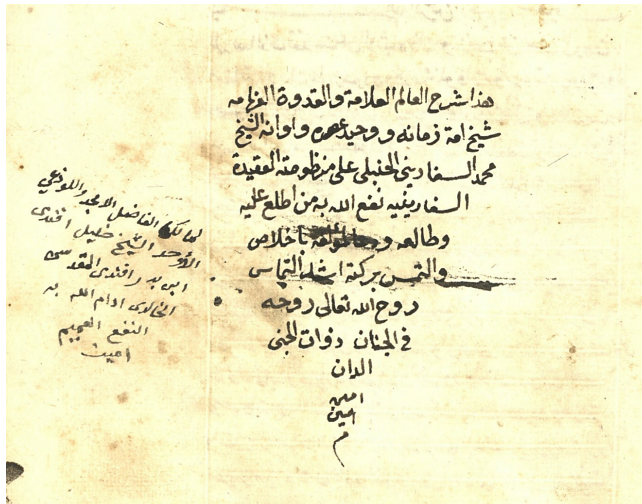 هذا شرح العالم العلامة والقدوة الفهامه
شيخ امة زمانه ووحيد عصره واوانه الشيخ
محمد السفاريني الحنبلي على منظومته العقيدة
السفارينيه نفع الله به من اطلع عليه
وطالعه باخلاص
والتمس بركته اشد التماس
روح الله تعالى روحه
في الجنان ذوات الجنى
الدان
امين
امين
م
لمالكه الفاضل الامجد واللوذعي
الأوحد الشيخ خليل افندى
ابن بدر افندى المقدسى
الخالدى ادام الله به
النفع العميم
امين